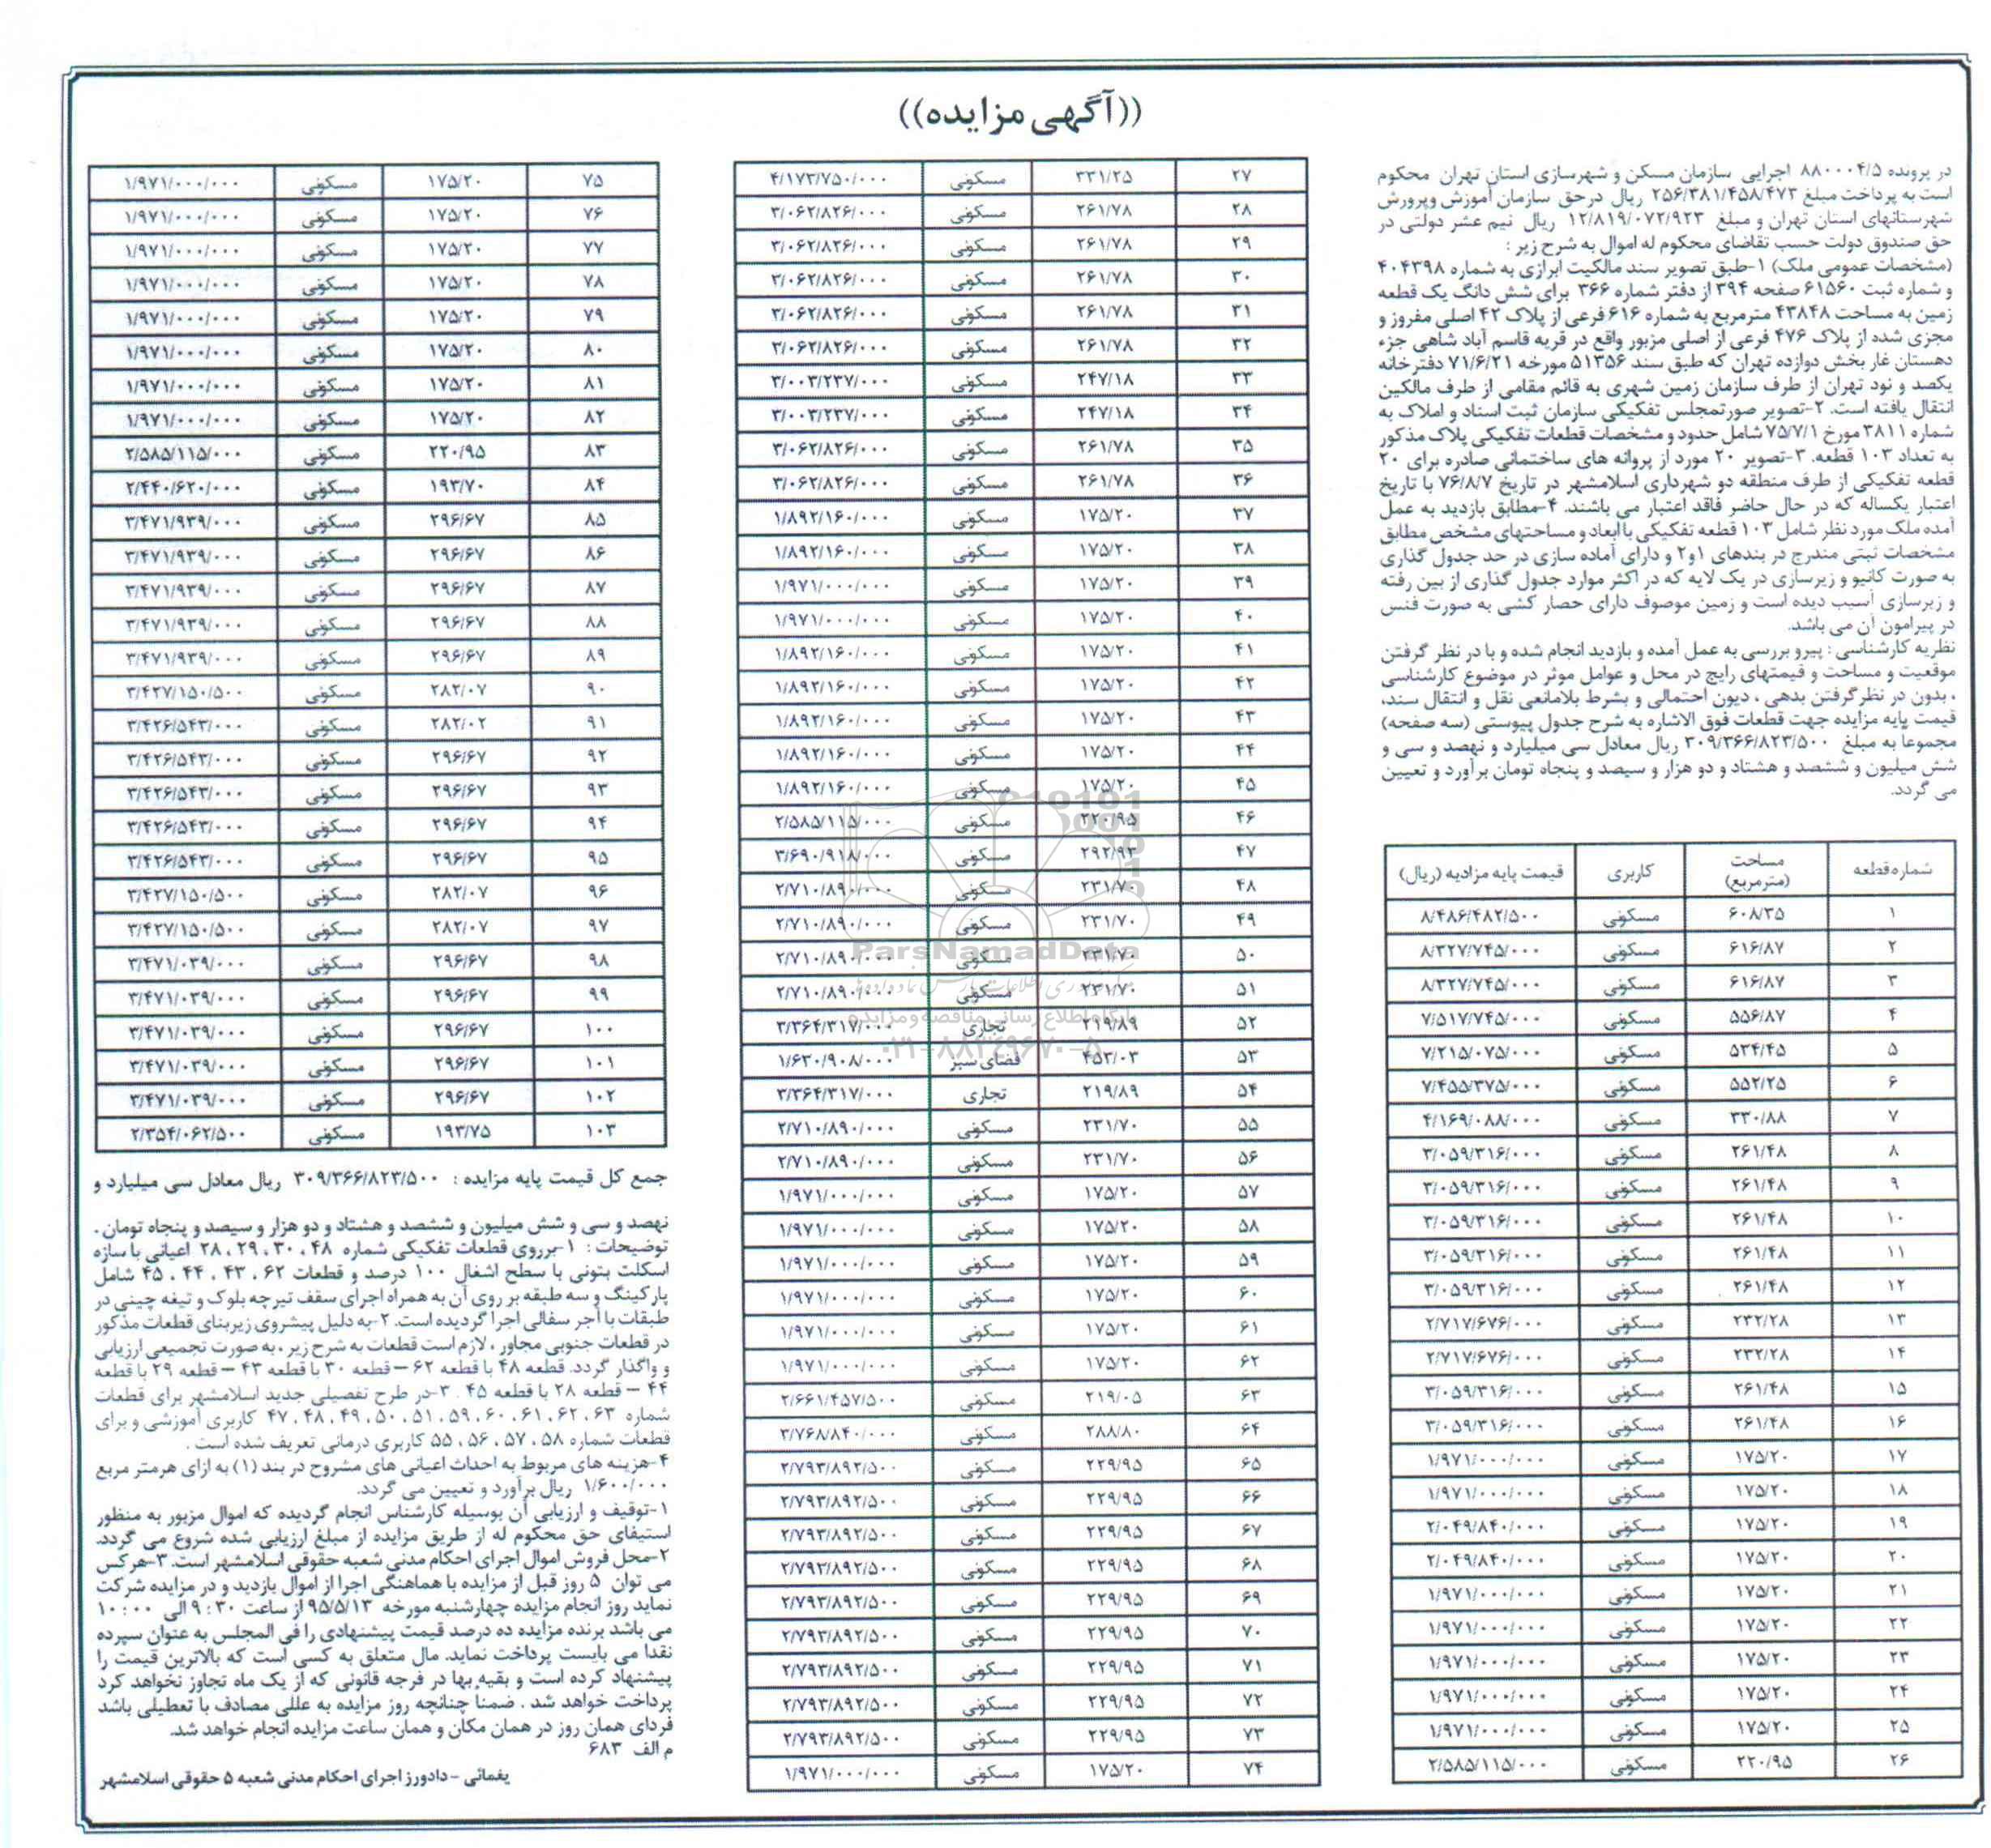 ((آگهی مزایده))
در پرونده ۸۸۰۰۰۴/۵ اجرایی سازمان مسکن و شهرسازی استان تهران محکوم
است به پرداخت مبلغ ۲۵۶/۳۸۱/۴۵۸/۴۷۳ ریال درحق سازمان آموزش وپرورش
شهرستانهای استان تهران و مبلغ ۱۲/۸۱۹/۰۷۲/۹۲۳ ریال نیم عشر دولتی در
حق صندوق دولت حسب تقاضای محکوم له اموال به شرح زیر :
(مشخصات عمومی ملک) ۱-طبق تصویر سند مالکیت ابرازی به شماره ۴۰۴۳۹۸
و شماره ثبت ۶۱۵۶۰ صفحه ۳۹۴ از دفتر شماره ۳۶۶ برای شش دانگ یک قطعه
زمین به مساحت ۴۳۸۴۸ مترمربع به شماره ۶۱۶ فرعی از پلاک ۴۲ اصلی مفروز و
مجزی شده از پلاک ۴۷۶ فرعی از اصلی مزبور واقع در قریه قاسم آباد شاهی جزء
دهستان غار بخش دوازده تهران که طبق سند ۵۱۳۵۶ مورخه ۷۱/۶/۲۱ دفترخانه
یکصد و نود تهران از طرف سازمان زمین شهری به قائم مقامی از طرف مالکین
انتقال یافته است. ۲-تصویر صورتمجلس تفکیکی سازمان ثبت اسناد و املاک به
شماره ۳۸۱۱ مورخ ۷۵/۷/۱ شامل حدود و مشخصات قطعات تفکیکی پلاک مذکور
به تعداد ۱۰۳ قطعه. ۳-تصویر ۲۰ مورد از پروانه های ساختمانی صادره برای ۲۰
قطعه تفکیکی از طرف منطقه دو شهرداری اسلامشهر در تاریخ ۷۶/۸/۷ با تاریخ
اعتبار یکساله که در حال حاضر فاقد اعتبار می باشند. ۴-مطابق بازدید به عمل
آمده ملک مورد نظر شامل ۱۰۳ قطعه تفکیکی با ابعاد و مساحتهای مشخص مطابق
مشخصات ثبتی مندرج در بندهای ۱و۲ و دارای آماده سازی در حد جدول گذاری
به صورت کانیو و زیرسازی در یک لایه که در اکثر موارد جدول گذاری از بین رفته
و زیرسازی آسیب دیده است و زمین موصوف دارای حصار کشی به صورت فنس
در پیرامون آن می باشد.
نظریه کارشناسی : پیرو بررسی به عمل آمده و بازدید انجام شده و با در نظر گرفتن
موقعیت و مساحت و قیمتهای رایج در محل و عوامل موثر در موضوع کارشناسی
، بدون در نظرگرفتن بدهی ، دیون احتمالی و بشرط بلامانعی نقل و انتقال سند،
قیمت پایه مزایده جهت قطعات فوق الاشاره به شرح جدول پیوستی (سه صفحه)
مجموعا به مبلغ ۳۰۹/۳۶۶/۸۲۳/۵۰۰ ریال معادل سی میلیارد و نهصد و سی و
شش میلیون و ششصد و هشتاد و دو هزار و سیصد و پنجاه تومان برآورد و تعیین
می گردد.
شماره قطعه مساحت (مترمربع) کاربری قیمت پایه مزادیه (ریال)
۱ ۶۰۸/۳۵ مسکونی ۸/۴۸۶/۴۸۲/۵۰۰
۲ ۶۱۶/۸۷ مسکونی ۸/۳۲۷/۷۴۵/۰۰۰
۳ ۶۱۶/۸۷ مسکونی ۸/۳۲۷/۷۴۵/۰۰۰
۴ ۵۵۶/۸۷ مسکونی ۷/۵۱۷/۷۴۵/۰۰۰
۵ ۵۳۴/۴۵ مسکونی ۷/۲۱۵/۰۷۵/۰۰۰
۶ ۵۵۲/۲۵ مسکونی ۷/۴۵۵/۳۷۵/۰۰۰
۷ ۳۳۰/۸۸ مسکونی ۴/۱۶۹/۰۸۸/۰۰۰
۸ ۲۶۱/۴۸ مسکونی ۳/۰۵۹/۳۱۶/۰۰۰
۹ ۲۶۱/۴۸ مسکونی ۳/۰۵۹/۳۱۶/۰۰۰
۱۰ ۲۶۱/۴۸ مسکونی ۳/۰۵۹/۳۱۶/۰۰۰
۱۱ ۲۶۱/۴۸ مسکونی ۳/۰۵۹/۳۱۶/۰۰۰
۱۲ ۲۶۱/۴۸ مسکونی ۳/۰۵۹/۳۱۶/۰۰۰
۱۳ ۲۳۲/۲۸ مسکونی ۲/۷۱۷/۶۷۶/۰۰۰
۱۴ ۲۳۲/۲۸ مسکونی ۲/۷۱۷/۶۷۶/۰۰۰
۱۵ ۲۶۱/۴۸ مسکونی ۳/۰۵۹/۳۱۶/۰۰۰
۱۶ ۲۶۱/۴۸ مسکونی ۳/۰۵۹/۳۱۶/۰۰۰
۱۷ ۱۷۵/۲۰ مسکونی ۱/۹۷۱/۰۰۰/۰۰۰
۱۸ ۱۷۵/۲۰ مسکونی ۱/۹۷۱/۰۰۰/۰۰۰
۱۹ ۱۷۵/۲۰ مسکونی ۲/۰۴۹/۸۴۰/۰۰۰
۲۰ ۱۷۵/۲۰ مسکونی ۲/۰۴۹/۸۴۰/۰۰۰
۲۱ ۱۷۵/۲۰ مسکونی ۱/۹۷۱/۰۰۰/۰۰۰
۲۲ ۱۷۵/۲۰ مسکونی ۱/۹۷۱/۰۰۰/۰۰۰
۲۳ ۱۷۵/۲۰ مسکونی ۱/۹۷۱/۰۰۰/۰۰۰
۲۴ ۱۷۵/۲۰ مسکونی ۱/۹۷۱/۰۰۰/۰۰۰
۲۵ ۱۷۵/۲۰ مسکونی ۱/۹۷۱/۰۰۰/۰۰۰
۲۶ ۲۲۰/۹۵ مسکونی ۲/۵۸۵/۱۱۵/۰۰۰
۲۷ ۳۳۱/۲۵ مسکونی ۴/۱۷۳/۷۵۰/۰۰۰
۲۸ ۲۶۱/۷۸ مسکونی ۳/۰۶۲/۸۲۶/۰۰۰
۲۹ ۲۶۱/۷۸ مسکونی ۳/۰۶۲/۸۲۶/۰۰۰
۳۰ ۲۶۱/۷۸ مسکونی ۳/۰۶۲/۸۲۶/۰۰۰
۳۱ ۲۶۱/۷۸ مسکونی ۳/۰۶۲/۸۲۶/۰۰۰
۳۲ ۲۶۱/۷۸ مسکونی ۳/۰۶۲/۸۲۶/۰۰۰
۳۳ ۲۴۷/۱۸ مسکونی ۳/۰۰۳/۲۳۷/۰۰۰
۳۴ ۲۴۷/۱۸ مسکونی ۳/۰۰۳/۲۳۷/۰۰۰
۳۵ ۲۶۱/۷۸ مسکونی ۳/۰۶۲/۸۲۶/۰۰۰
۳۶ ۲۶۱/۷۸ مسکونی ۳/۰۶۲/۸۲۶/۰۰۰
۳۷ ۱۷۵/۲۰ مسکونی ۱/۸۹۲/۱۶۰/۰۰۰
۳۸ ۱۷۵/۲۰ مسکونی ۱/۸۹۲/۱۶۰/۰۰۰
۳۹ ۱۷۵/۲۰ مسکونی ۱/۹۷۱/۰۰۰/۰۰۰
۴۰ ۱۷۵/۲۰ مسکونی ۱/۹۷۱/۰۰۰/۰۰۰
۴۱ ۱۷۵/۲۰ مسکونی ۱/۸۹۲/۱۶۰/۰۰۰
۴۲ ۱۷۵/۲۰ مسکونی ۱/۸۹۲/۱۶۰/۰۰۰
۴۳ ۱۷۵/۲۰ مسکونی ۱/۸۹۲/۱۶۰/۰۰۰
۴۴ ۱۷۵/۲۰ مسکونی ۱/۸۹۲/۱۶۰/۰۰۰
۴۵ ۱۷۵/۲۰ مسکونی ۱/۸۹۲/۱۶۰/۰۰۰
۴۶ ۲۲۰/۹۵ مسکونی ۲/۵۸۵/۱۱۵/۰۰۰
۴۷ ۲۹۲/۹۳ مسکونی ۳/۶۹۰/۹۱۸/۰۰۰
۴۸ ۲۳۱/۷۰ مسکونی ۲/۷۱۰/۸۹۰/۰۰۰
۴۹ ۲۳۱/۷۰ مسکونی ۲/۷۱۰/۸۹۰/۰۰۰
۵۰ ۲۳۱/۷۰ مسکونی ۲/۷۱۰/۸۹۰/۰۰۰
۵۱ ۲۳۱/۷۰ مسکونی ۲/۷۱۰/۸۹۰/۰۰۰
۵۲ ۲۱۹/۸۹ تجاری ۳/۳۶۴/۳۱۷/۰۰۰
۵۳ ۴۵۳/۰۳ فضای سبز ۱/۶۳۰/۹۰۸/۰۰۰
۵۴ ۲۱۹/۸۹ تجاری ۳/۳۶۴/۳۱۷/۰۰۰
۵۵ ۲۳۱/۷۰ مسکونی ۲/۷۱۰/۸۹۰/۰۰۰
۵۶ ۲۳۱/۷۰ مسکونی ۲/۷۱۰/۸۹۰/۰۰۰
۵۷ ۱۷۵/۲۰ مسکونی ۱/۹۷۱/۰۰۰/۰۰۰
۵۸ ۱۷۵/۲۰ مسکونی ۱/۹۷۱/۰۰۰/۰۰۰
۵۹ ۱۷۵/۲۰ مسکونی ۱/۹۷۱/۰۰۰/۰۰۰
۶۰ ۱۷۵/۲۰ مسکونی ۱/۹۷۱/۰۰۰/۰۰۰
۶۱ ۱۷۵/۲۰ مسکونی ۱/۹۷۱/۰۰۰/۰۰۰
۶۲ ۱۷۵/۲۰ مسکونی ۱/۹۷۱/۰۰۰/۰۰۰
۶۳ ۲۱۹/۰۵ مسکونی ۲/۶۶۱/۴۵۷/۵۰۰
۶۴ ۲۸۸/۸۰ مسکونی ۳/۷۶۸/۸۴۰/۰۰۰
۶۵ ۲۲۹/۹۵ مسکونی ۲/۷۹۳/۸۹۲/۵۰۰
۶۶ ۲۲۹/۹۵ مسکونی ۲/۷۹۳/۸۹۲/۵۰۰
۶۷ ۲۲۹/۹۵ مسکونی ۲/۷۹۳/۸۹۲/۵۰۰
۶۸ ۲۲۹/۹۵ مسکونی ۲/۷۹۳/۸۹۲/۵۰۰
۶۹ ۲۲۹/۹۵ مسکونی ۲/۷۹۳/۸۹۲/۵۰۰
۷۰ ۲۲۹/۹۵ مسکونی ۲/۷۹۳/۸۹۲/۵۰۰
۷۱ ۲۲۹/۹۵ مسکونی ۲/۷۹۳/۸۹۲/۵۰۰
۷۲ ۲۲۹/۹۵ مسکونی ۲/۷۹۳/۸۹۲/۵۰۰
۷۳ ۲۲۹/۹۵ مسکونی ۲/۷۹۳/۸۹۲/۵۰۰
۷۴ ۱۷۵/۲۰ مسکونی ۱/۹۷۱/۰۰۰/۰۰۰
۷۵ ۱۷۵/۲۰ مسکونی ۱/۹۷۱/۰۰۰/۰۰۰
۷۶ ۱۷۵/۲۰ مسکونی ۱/۹۷۱/۰۰۰/۰۰۰
۷۷ ۱۷۵/۲۰ مسکونی ۱/۹۷۱/۰۰۰/۰۰۰
۷۸ ۱۷۵/۲۰ مسکونی ۱/۹۷۱/۰۰۰/۰۰۰
۷۹ ۱۷۵/۲۰ مسکونی ۱/۹۷۱/۰۰۰/۰۰۰
۸۰ ۱۷۵/۲۰ مسکونی ۱/۹۷۱/۰۰۰/۰۰۰
۸۱ ۱۷۵/۲۰ مسکونی ۱/۹۷۱/۰۰۰/۰۰۰
۸۲ ۱۷۵/۲۰ مسکونی ۱/۹۷۱/۰۰۰/۰۰۰
۸۳ ۲۲۰/۹۵ مسکونی ۲/۵۸۵/۱۱۵/۰۰۰
۸۴ ۱۹۳/۷۰ مسکونی ۲/۴۴۰/۶۲۰/۰۰۰
۸۵ ۲۹۶/۶۷ مسکونی ۳/۴۷۱/۹۳۹/۰۰۰
۸۶ ۲۹۶/۶۷ مسکونی ۳/۴۷۱/۹۳۹/۰۰۰
۸۷ ۲۹۶/۶۷ مسکونی ۳/۴۷۱/۹۳۹/۰۰۰
۸۸ ۲۹۶/۶۷ مسکونی ۳/۴۷۱/۹۳۹/۰۰۰
۸۹ ۲۹۶/۶۷ مسکونی ۳/۴۷۱/۹۳۹/۰۰۰
۹۰ ۲۸۲/۰۷ مسکونی ۳/۴۲۷/۱۵۰/۵۰۰
۹۱ ۲۸۲/۰۲ مسکونی ۳/۴۲۶/۵۴۳/۰۰۰
۹۲ ۲۹۶/۶۷ مسکونی ۳/۴۲۶/۵۴۳/۰۰۰
۹۳ ۲۹۶/۶۷ مسکونی ۳/۴۲۶/۵۴۳/۰۰۰
۹۴ ۲۹۶/۶۷ مسکونی ۳/۴۲۶/۵۴۳/۰۰۰
۹۵ ۲۹۶/۶۷ مسکونی ۳/۴۲۶/۵۴۳/۰۰۰
۹۶ ۲۸۲/۰۷ مسکونی ۳/۴۲۷/۱۵۰/۵۰۰
۹۷ ۲۸۲/۰۷ مسکونی ۳/۴۲۷/۱۵۰/۵۰۰
۹۸ ۲۹۶/۶۷ مسکونی ۳/۴۷۱/۰۳۹/۰۰۰
۹۹ ۲۹۶/۶۷ مسکونی ۳/۴۷۱/۰۳۹/۰۰۰
۱۰۰ ۲۹۶/۶۷ مسکونی ۳/۴۷۱/۰۳۹/۰۰۰
۱۰۱ ۲۹۶/۶۷ مسکونی ۳/۴۷۱/۰۳۹/۰۰۰
۱۰۲ ۲۹۶/۶۷ مسکونی ۳/۴۷۱/۰۳۹/۰۰۰
۱۰۳ ۱۹۳/۷۵ مسکونی ۲/۳۵۴/۰۶۲/۵۰۰
جمع کل قیمت پایه مزایده : ۳۰۹/۳۶۶/۸۲۳/۵۰۰ ریال معادل سی میلیارد و
نهصد و سی و شش میلیون و ششصد و هشتاد و دو هزار و سیصد و پنجاه تومان .
توضیحات : ۱-برروی قطعات تفکیکی شماره ۴۸ ، ۳۰ ، ۲۹ ، ۲۸ اعیانی با سازه
اسکلت بتونی با سطح اشغال ۱۰۰ درصد و قطعات ۶۲ ، ۴۳ ، ۴۴ ، ۴۵ شامل
پارکینگ و سه طبقه بر روی آن به همراه اجرای سقف تیرچه بلوک و تیغه چینی در
طبقات با آجر سفالی اجرا گردیده است. ۲-به دلیل پیشروی زیربنای قطعات مذکور
در قطعات جنوبی مجاور ، لازم است قطعات به شرح زیر ، به صورت تجمیعی ارزیابی
و واگذار گردد. قطعه ۴۸ با قطعه ۶۲ – قطعه ۳۰ با قطعه ۴۳ – قطعه ۲۹ با قطعه
۴۴ – قطعه ۲۸ با قطعه ۴۵ . ۳-در طرح تفصیلی جدید اسلامشهر برای قطعات
شماره ۶۳ ، ۶۲ ، ۶۱ ، ۶۰ ، ۵۹ ، ۵۱ ، ۵۰ ، ۴۹ ، ۴۸ ، ۴۷ کاربری آموزشی و برای
قطعات شماره ۵۸ ، ۵۷ ، ۵۶ ، ۵۵ کاربری درمانی تعریف شده است .
۴-هزینه های مربوط به احداث اعیانی های مشروح در بند (۱) به ازای هرمتر مربع
۱/۶۰۰/۰۰۰ ریال برآورد و تعیین می گردد.
۱-توقیف و ارزیابی آن بوسیله کارشناس انجام گردیده که اموال مزبور به منظور
استیفای حق محکوم له از طریق مزایده از مبلغ ارزیابی شده شروع می گردد.
۲-محل فروش اموال اجرای احکام مدنی شعبه حقوقی اسلامشهر است. ۳-هرکس
می توان ۵ روز قبل از مزایده با هماهنگی اجرا از اموال بازدید و در مزایده شرکت
نماید روز انجام مزایده چهارشنبه مورخه ۹۵/۵/۱۳ از ساعت ۹:۳۰ الی ۱۰:۰۰
می باشد برنده مزایده ده درصد قیمت پیشنهادی را فی المجلس به عنوان سپرده
نقدا می بایست پرداخت نماید. مال متعلق به کسی است که بالاترین قیمت را
پیشنهاد کرده است و بقیه بها در فرجه قانونی که از یک ماه تجاوز نخواهد کرد
پرداخت خواهد شد . ضمنا چنانچه روز مزایده به عللی مصادف با تعطیلی باشد
فردای همان روز در همان مکان و همان ساعت مزایده انجام خواهد شد.
م الف ۶۸۳
یغمائی – دادورز اجرای احکام مدنی شعبه ۵ حقوقی اسلامشهر
ParsNamadData
پایگاه اطلاع رسانی مناقصه و مزایده
۰۲۱-۸۸۳۴۹۶۷۰-۵